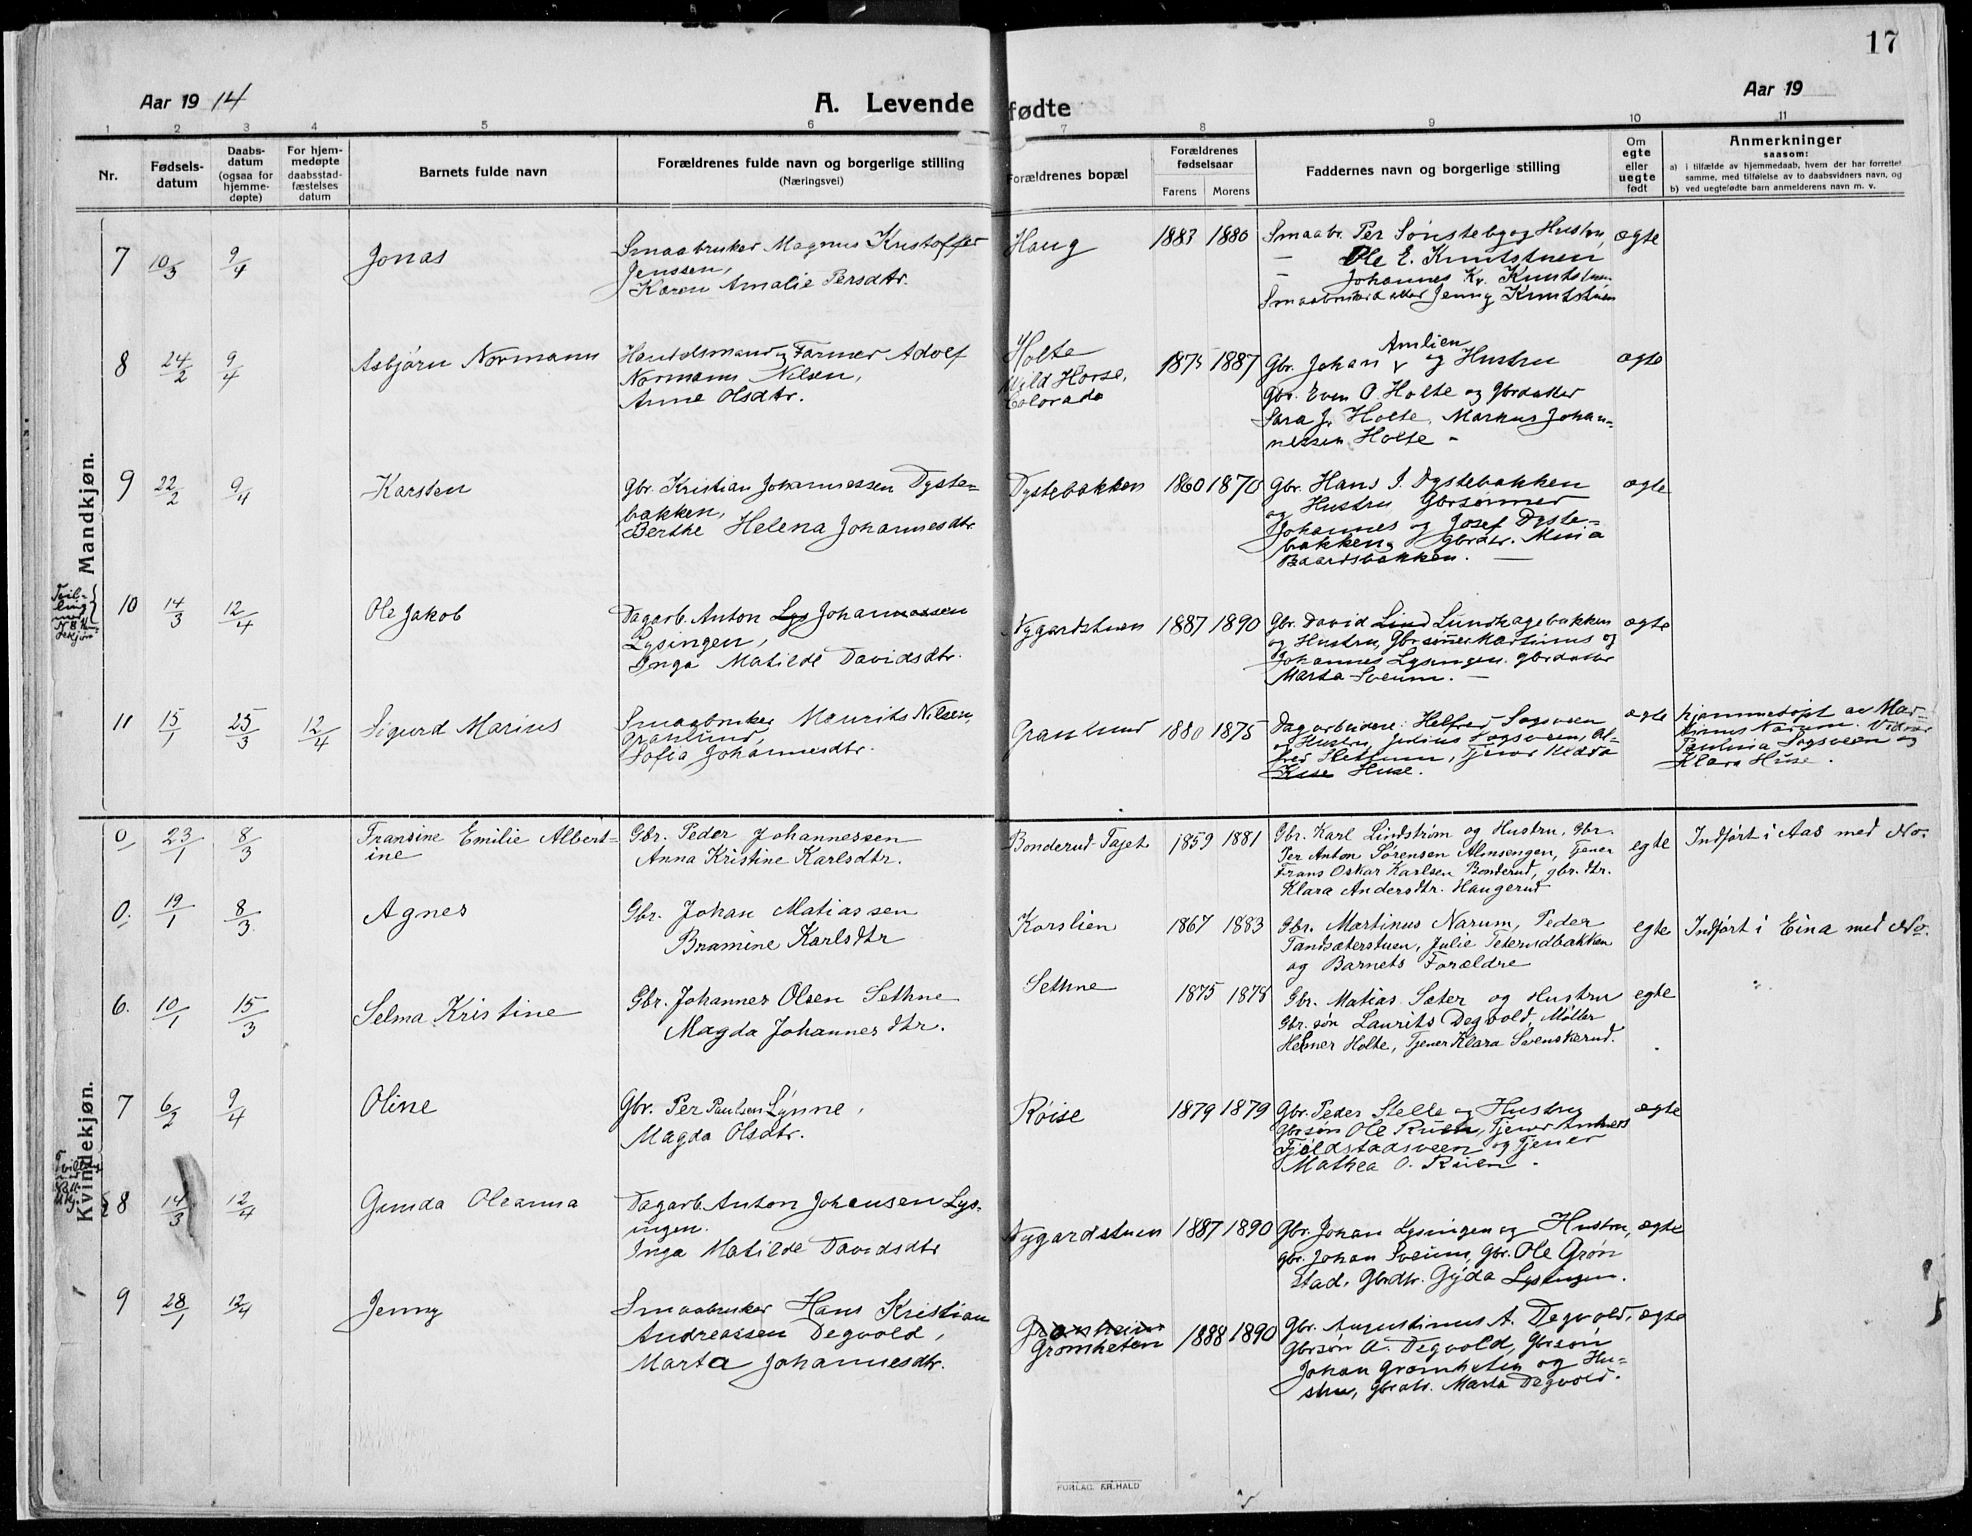 17
Aar 1914
A. Levende fødte
Aar 19
1 2 3 4 5 6 7 8 9 10 11
Nr.
Fødsels-
datum
Daabs-
datum
(ogsaa for
hjemme-
døpte)
For hjem-
medøpte
daabsstad-
fæstelses
datum
Barnets fulde navn
Forældrenes fulde navn og borgerlige stilling
(Næringsvei)
Forældrenes bopæl
Forældrenes
fødselsaar
Farens Morens
Faddernes navn og borgerlige stilling
Om
egte
eller
uegte
født
Anmerkninger
saasom:
a) i tilfælde av hjemmedaab, hvem der har forrettet
samme, med tilføielse av to daabsvidners navn, og
b) ved uegtefødte barn anmelderens navn m. v.
Mandkjøn.
7 10/3 9/4 Jonas
Smaabruker Magnus Kristoffer
Jenssen,
Karen Amalie Persdtr.
Haug 1883 1880
Smaabr. Per Sønsteby og Hustru,
— Ole E. Knutstuen
— Johannes Kr. Knutstuen
Smaabrukerdatter Jenny Knutstuen
ægte
8 24/2 9/4 Asbjørn Normann
Handelsmand og Farmer Adolf
Normann Nilsen,
Anne Olsdtr.
Holte
Wild Horse,
Colorado
1875 1887
Amlien
Gbr. Johan v og Hustru
Gbr. Even O. Holte og Gbrdatter
Sara J. Holte, Markus Johan-
nessen Holte -
ægte
9 22/2 9/4 Karsten
Gbr. Kristian Johannessen Dyste-
bakken,
Berthe Helena Johannesdtr
Dystebakken 1860 1870
Gbr. Hans J. Dystebakken
og Hustru, Gbrsønner
Johannes og Josef Dyste-
bakken, Gbrdtr. Mina
Baardsbakken. —
ægte
10 14/3 12/4 Ole Jakob
Dagarb. Anton Lys Johannessen
Lysingen,
Inga Matilde Davidsdtr.
Nygardstuen 1887 1890
Gbr. David Lind Lundhagebakken
og Hustru, Gbrsønner Martinus og
Johannes Lysingen. Gbrdatter
Marta Sveum. —
ægte
11 15/1 25/3 12/4 Sigurd Marius
Smaabruker Maurits Nilsen
Granlund,
Sofia Johannesdtr.
Granlund 1880 1875
Dagarbeidere: Helfred Sogsveen
og Hustru, Julius Sogsveen, Al-
fred Slettum, Tjener Klara
Kise Huse.
ægte
hjemmedøpt av Mar-
tinus Narum. Vidner
Paulina Sogsveen og
Klara Huse.
Kvindekjøn.
0 23/1 8/3 Fransine Emilie Albert-
ine
Gbr. Peder Johannessen
Anna Kristine Karlsdtr.
Bonderud-Tajet 1859 1881
Gbr. Karl Lindstrøm og Hustru, Gbr.
Per Anton Sørensen Almsengen, Tjener
Frans Oskar Karlsen Bonderud, gbr.dtr.
Klara Andersdtr. Haugerud
egte
Indført i Aas med No.
0. 19/1 8/3 Agnes
Gbr. Johan Matiassen
Bramine Karlsdtr
Korslien 1867 1883
Gbr. Martinus Narum, Peder
Tandsæterstuen, Julie Teterudbakken
og Barnets Forældre
egte
Indført i Eina med No.
6. 10/1 15/3 Selma Kristine
Gbr. Johannes Olsen Sethne
Magda Johannesdtr.
Sethne 1875 1878
Gbr. Matias Sæter og Hustru
Gbr.søn Laurits Degvold, Møller
Helmer Holte, Tjener Klara Svenskerud.
egte
7 6/2 9/4 Oline
Gbr. Per Paulsen Lynne,
Magda Olsdtr.
Røise 1879 1879
Gbr. Peder Stelle og Hustru
Gbrsøn Ole Ruen, Tjener Anders
Fjeldstadsveen og Tjener
Mathea O. Ruen.
ægte
8 14/3 12/4 Gunda Oleanna
Dagarb. Anton Johansen Lys-
ingen.
Inga Matilde Davidsdtr
Nygardstuen 1887 1890
Gbr. Johan Lysingen og Hustru,
gbr. Johan Sveum, Gbr. Ole Grøn
stad, Gbrdtr. Gyda Lysingen.
ægte
9 28/1 12/4 Jenny
Smaabruker Hans Kristian
Andreassen Degvold,
Marta Johannesdtr.
Grønheim
Grømheten
1888 1890
Gbr. Augustinus A. Degvold,
Gbrsøn A. Degvold, Gbrsøn
Johan Grømheten og Hu-
stru, Gbrdtr. Marta Degvold.
ægte
FORLAG. FR. HALD